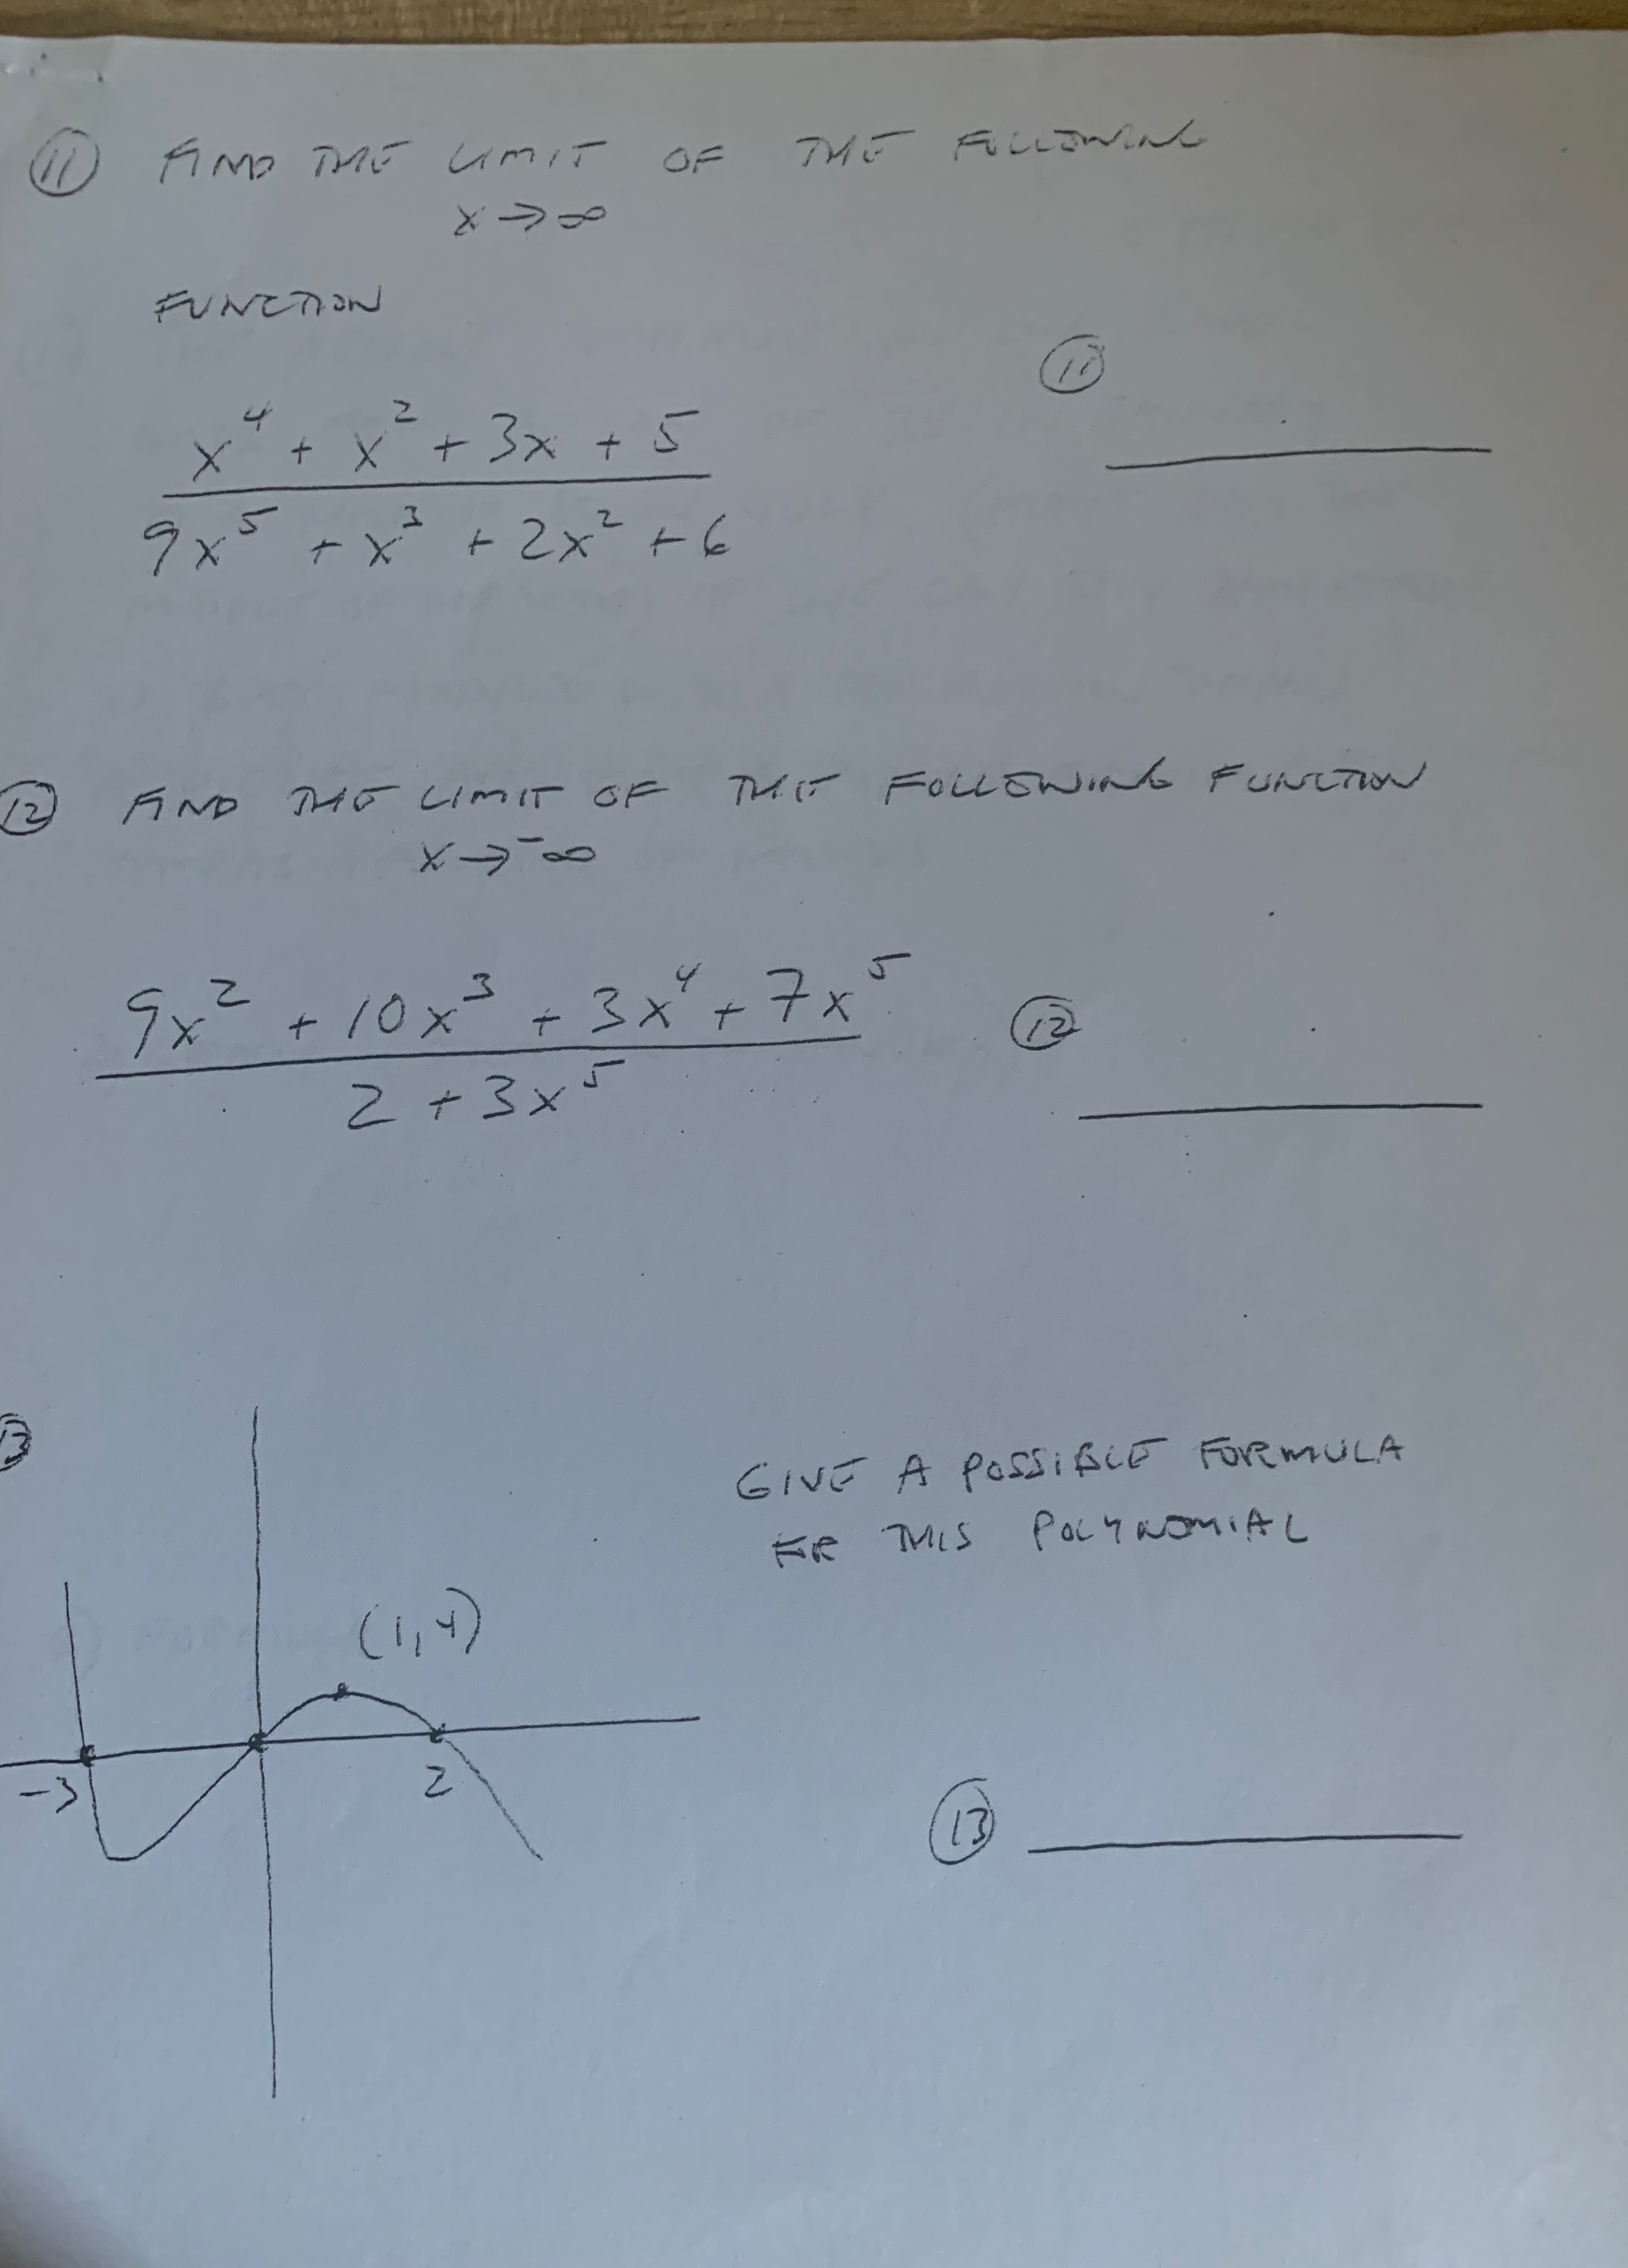 ⑪ FIND THE LIMIT OF THE FOLLOWING
x → ∞
FUNCTION
⑪
x⁴ + x² + 3x + 5
9x⁵ + x³ + 2x² + 6
⑫ FIND THE LIMIT OF THE FOLLOWING FUNCTION
x → ⁻∞
9x² + 10x³ + 3x⁴ + 7x⁵
2 + 3x⁵
⑫
⑬
GIVE A POSSIBLE FORMULA
FOR THIS POLYNOMIAL
(1,4)
-3
2
⑬